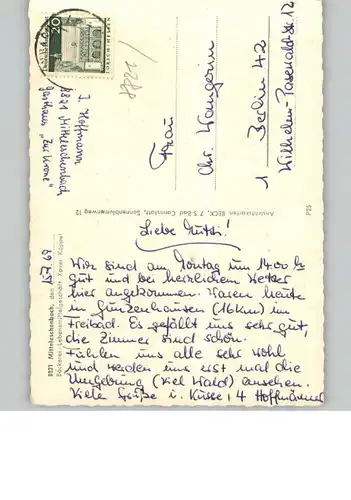 Liebe Mutti!
Wir sind am Montag um 14.00 h
gut und bei herrlichem Wetter
hier angekommen. Waren heute
in Gunzenhausen (16 km) im
Freibad. Es gefällt uns sehr gut,
die Zimmer sind schön.
Fühlen uns alle sehr wohl
und werden uns erst mal die
Umgebung (viel Wald) ansehen.
Viele Grüße u. Küsse, 4 Hoffmänner
8821 Mitteleschenbach, den
Bäckerei-Lebensmittelgeschäft Xaver Köppel
Ansichtskarten BECK, 7 S-Bad Cannstatt, Sonnenblumenweg 12
P25
J. Hoffmann
8821 Mitteleschenbach
Gasthaus „Zur Krone"
8821/
Frau
Chr. Wangerin
1 Berlin 42
20
LORSCH/HESSEN